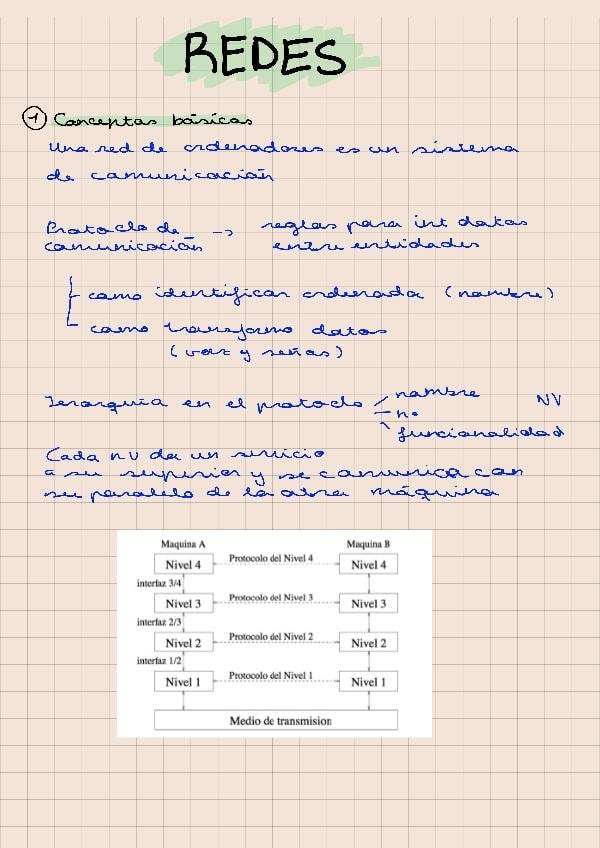 REDES
① Conceptos básicos
Una red de ordenadores es un sistema
de comunicación
Protocolo de -> reglas para int datos
comunicación entre entidades
como identificar ordenada (nombre)
como transformo datos
(voz y señas)
Jerarquía en el protoclo nombre NV
nº
funcionalidad
Cada nv da un servicio
a su superior y se comunica con
su paralelo de la otra máquina
Maquina A Maquina B
Nivel 4 Protocolo del Nivel 4 Nivel 4
interfaz 3/4
Nivel 3 Protocolo del Nivel 3 Nivel 3
interfaz 2/3
Nivel 2 Protocolo del Nivel 2 Nivel 2
interfaz 1/2
Nivel 1 Protocolo del Nivel 1 Nivel 1
Medio de transmision